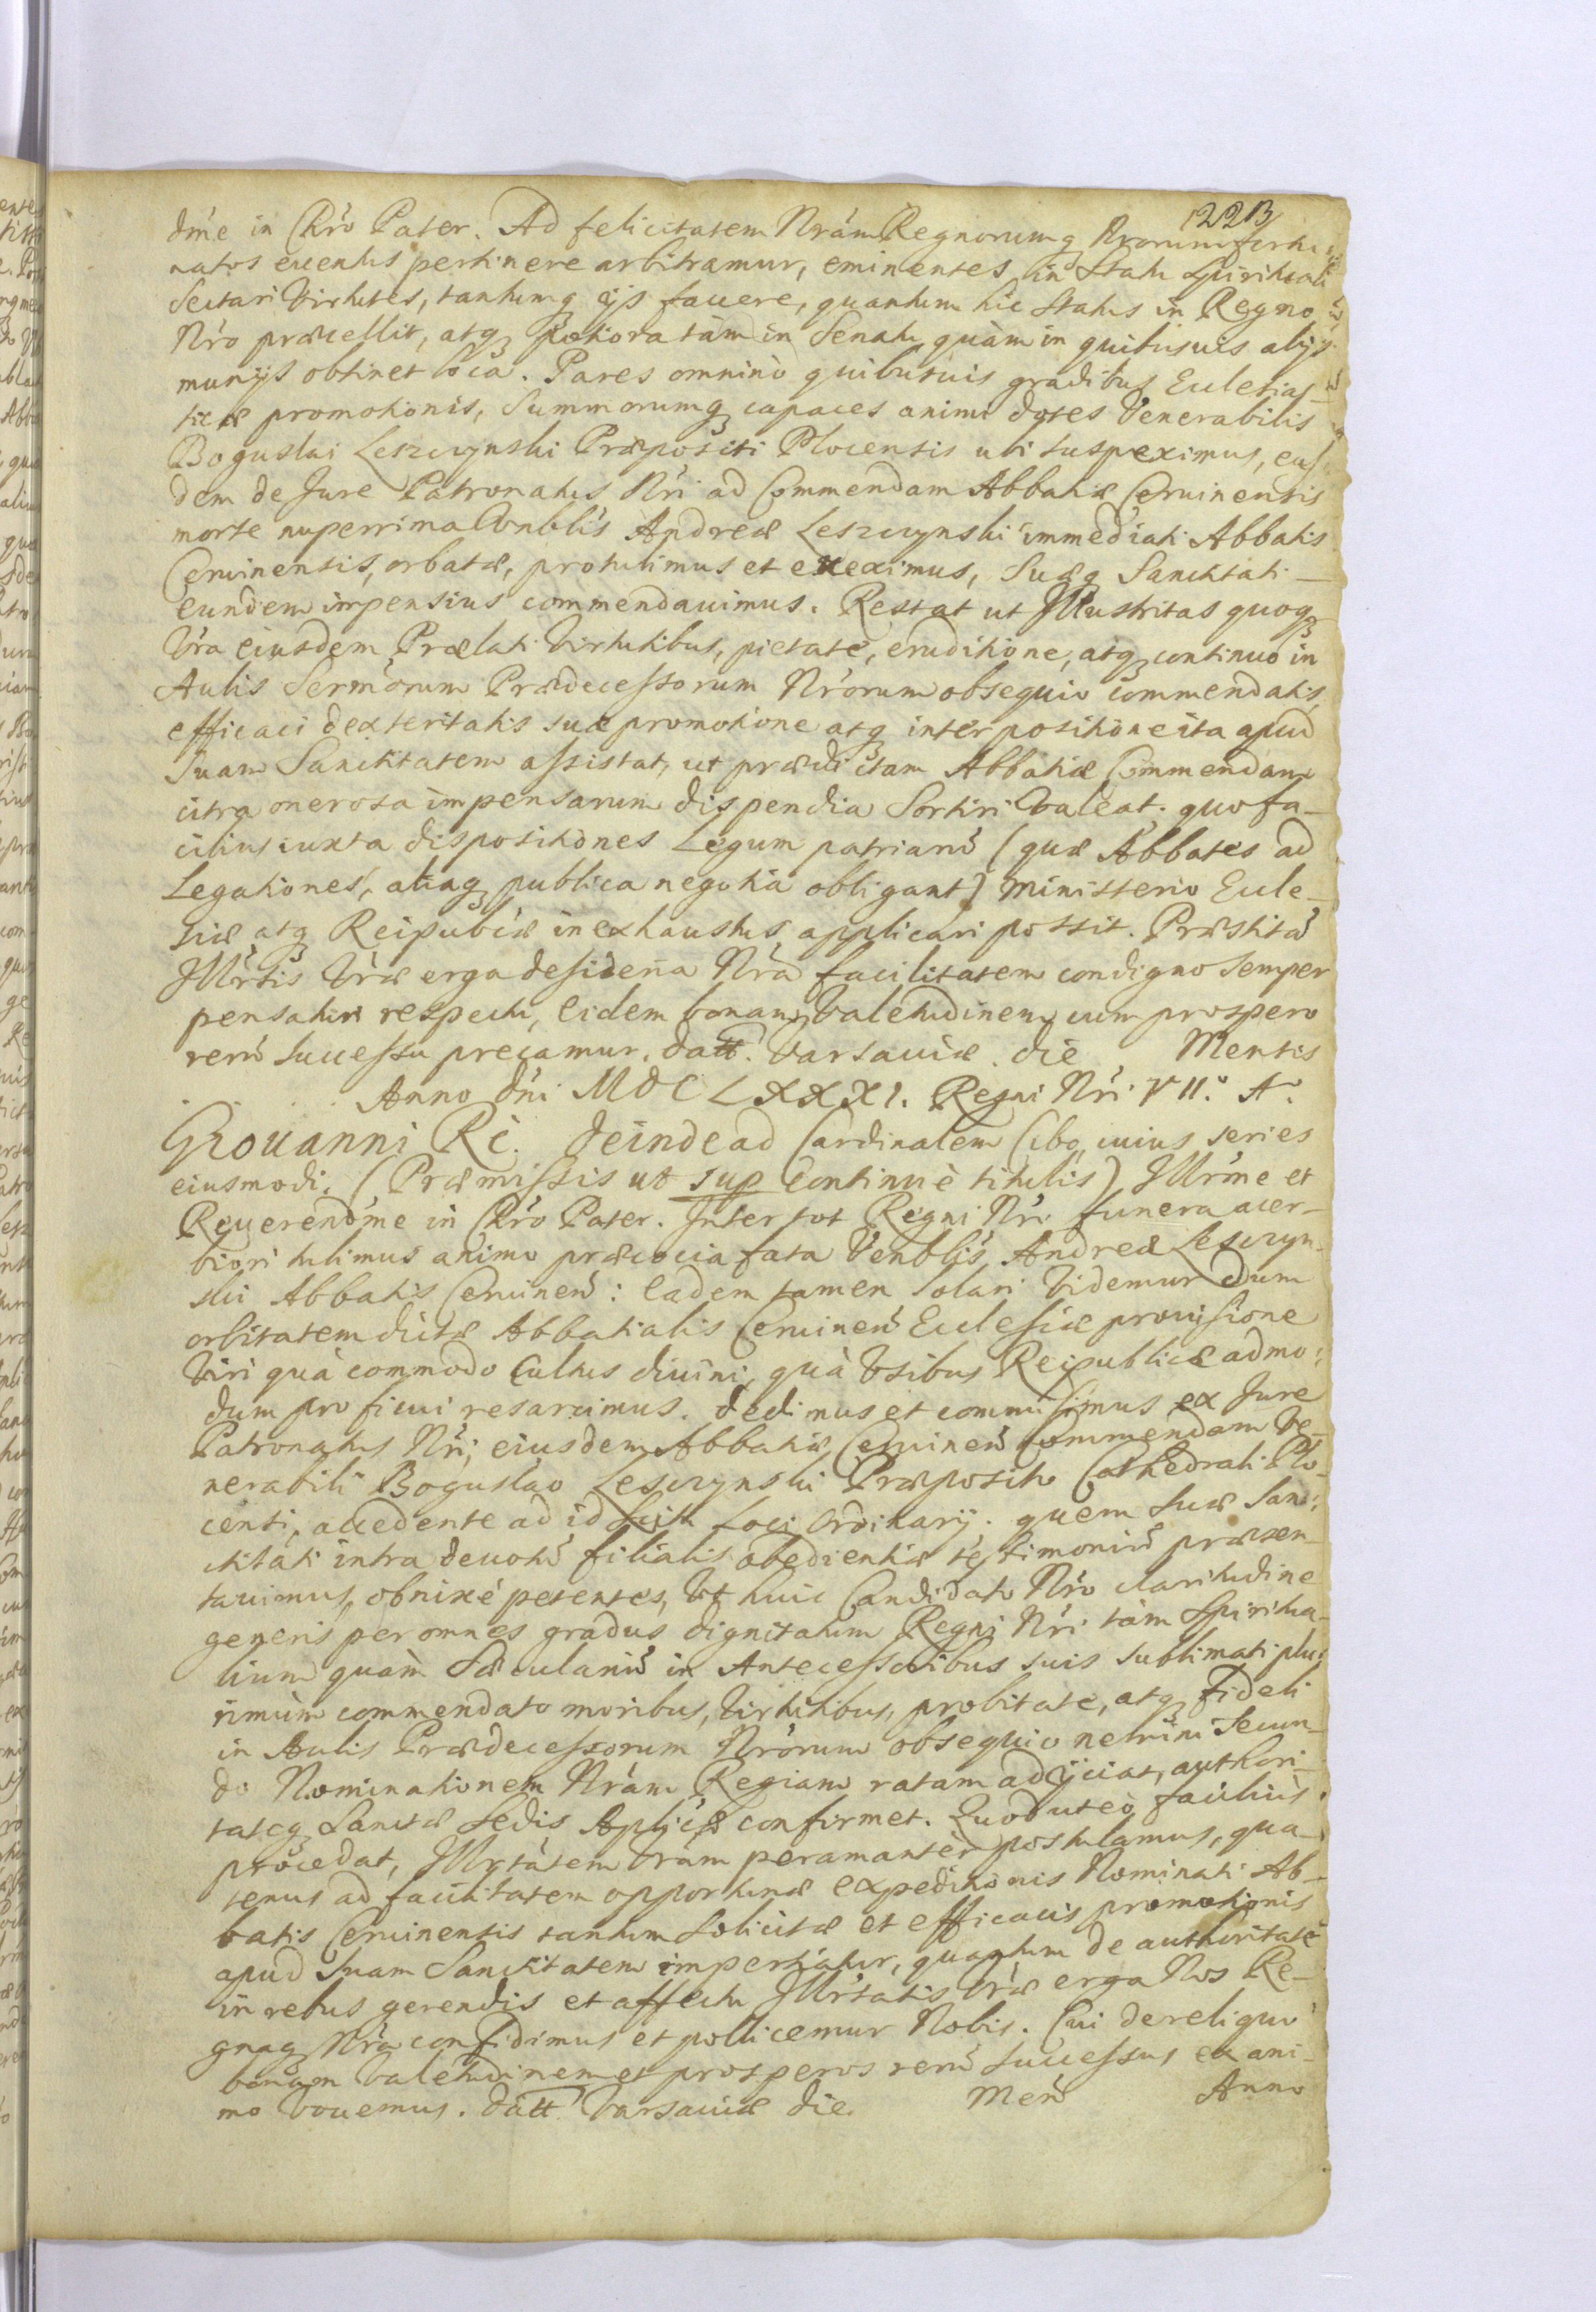 223
dm̃e in Chr̃o Pater. Ad felicitatem Nrãm Regnorumq Nrorum fortu-
natos euentus pertinere arbitramur, eminentes in Statu Spirituali
Sectari Virtutes, tantumq ijs fauere, quantum hic Status in Regno
Nr̃o præcellit, atq potiora tàm in Senatu quàm in quibusuis alijs
munijs obtinet loca. Pares omninò quibusuis gradibus Ecclesias-
ticæ promotionis, Summorumq capaces animi dotes Venerabilis
Boguslai Leszczynski Præpositi Plocensis uti suspeximus, eun
dem de Jure Patronatus Nr̃i ad Commendam Abbatiæ Cervinensis
morte nuperrima Vnblis Andreæ Leszczynski immediati Abbatis
Cervinensis, orbatæ, protulimus et eueximus, Suæq Sanctitati
eundem impensius commendauimus. Restat ut Illustritas quoq
Vr̃a eiusdem Prælati Virtutibus, pietate, eruditione, atq continuo in
Aulis Sermorum Prædecessorum Nr̃orum obsequio commendatis,
efficaci dexteritatis suæ promotione atq interpositione ita apud
Suam Sanctitatem assistat, ut prædictam Abbatiæ Commendam
citra onerosa impensarum dispendia Sortiri Valeat, quo fa-
cilius iuxta dispositiones Legum patriarũ (quæ Abbates ad
Legationes, aliaq publica negotia obligant) ministerio Eccle-
siæ atq Reipublcæ inexhaustus applicari possit. Præstitã
Illrtis Vr̃æ erga desideria Nr̃a facilitatem condigno Semper
pensaturi respectu, Eidem bonam Valetudinem cum prospero
rerũ Successu precamur. Datt. Varsauiæ die Mensis
Anno Dni MDCLXXXI. Regni Nr̃i VII. Aº.
Giouanni Rè. Deinde ad Cardinalem Cibo, cuius series
eiusmodi. (Præmissis ut sup continuè titulis) Illr̃me et
Reuerendm̃e in Chr̃o Pater. Inter tot Regni Nr̃i funera acer-
biori tulimus animo præcocia fata Venblis Andreæ Leszczyn-
ski Abbatis Cervinen̄: Eadem tamen Solari Videmur dum
orbitatem dictæ Abbatialis Cervinen̄ Ecclesiæ prouisione
Viri quà commodo Cultus diuini, quà Vsibus Reipublicæ admo:
dum proficui resarcimus. Dedimus et commisimus ex Jure
Patronatus Nr̃i, eiusdem Abbatiæ Cervinen̄ commendam Ve-
nerabili Boguslao Leszczynski Præposito Cathedrali Plo-
censi, accedente ad id Scitu Loci Ordinarij. quem Suæ Sanc:
titati intra deuotũ filialis obedientiæ testimoniũ præsen-
tauimus, obnixé petentes, Vt huic Candidato Nr̃o claritudine
generis per omnes gradus dignitatum Regni Nr̃i tàm Spiritua-
lium quàm Sæcularium in Antecessoribus suis sublimati plu:
rimùm commendato moribus, Virtutibus, probitate, atq fideli
in Aulis Prædecessorum Nrõrum obsequio nemini Secun-
do Nominationem Nr̃am Regiam ratam adijciat, authori-
tateq Sanctæ Sedis Aplicæ confirmet. Quod ut eò faciliùs
procedat, Illrtatem Vr̃am peramantèr postulamus, qua-
tenus ad facilitatem opportunæ expeditionis Nominati Ab-
batis Cervinensis tantum Solicitæ et efficacis promotionis
apud Suam Sanctitatem impertiatur, quantum de authoritate
in rebus gerendis et affectu Illrtatis Vr̃æ erga Nos Re-
gnaq Nr̃a confidimus et pollicemur Nobis. Cui de reliquo
bonam Valetudinem et prosperos rerũ Successus ex ani-
mo Vouemus. Datt. Varsauiæ die Men̄ Anno